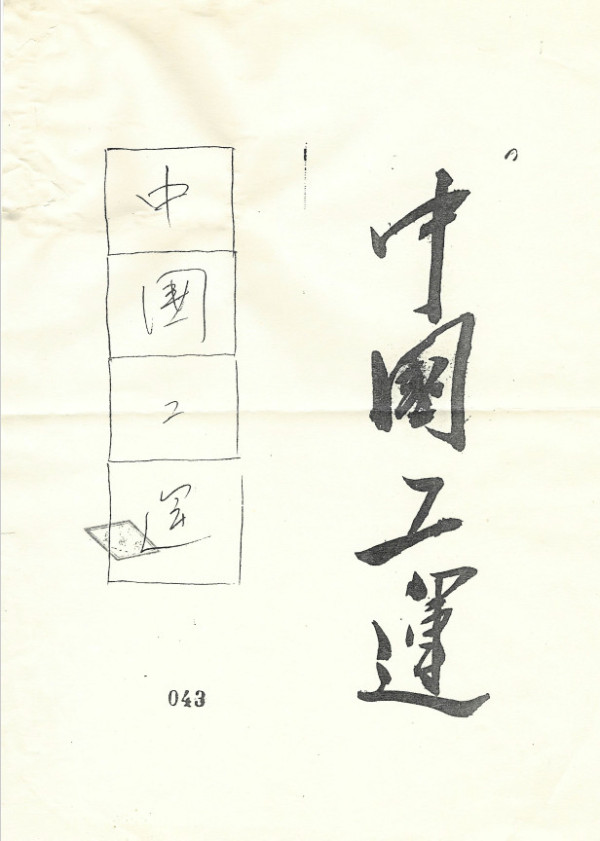 中國工運
中國工運
043